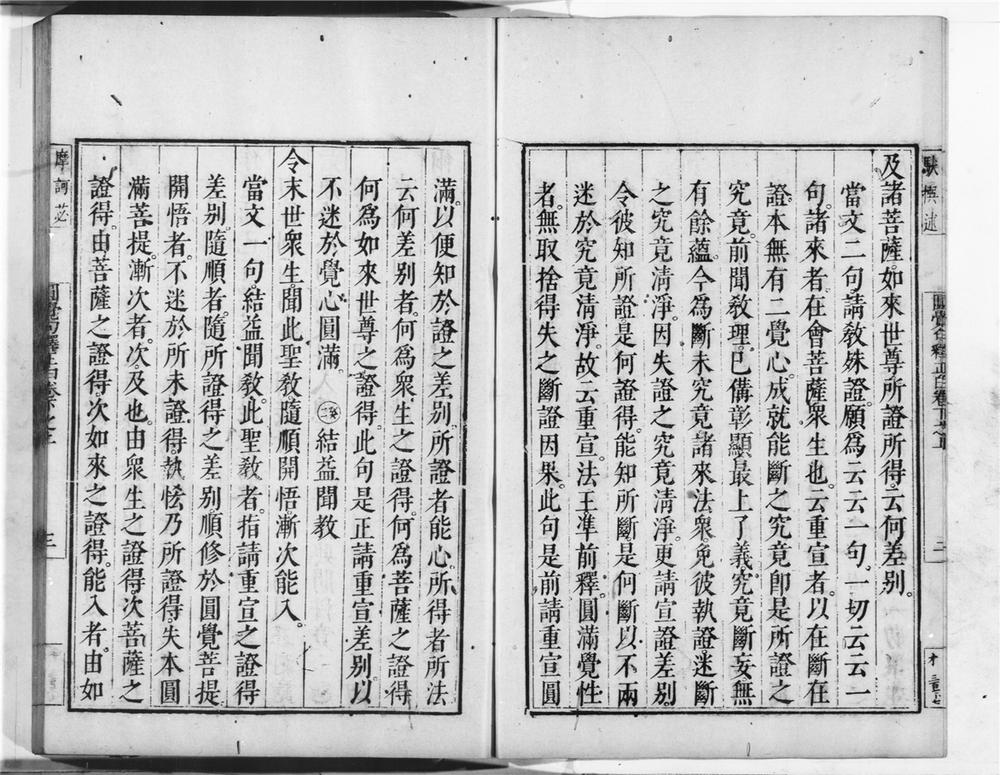 駃撰述
圓覺句釋正白卷下之五
二
及諸菩薩。如來世尊所證所得。云何差別。
當文二句。請教殊證。願爲云云一句。一切云云一
句。諸來者。在會菩薩衆生也。云重宣者。以在斷在
證。本無有二覺心。成就能斷之究竟。即是所證之
究竟。前聞教理。巳備彰顯最上了義。究竟斷妄無
有餘蘊。今爲斷未究竟諸來法衆。免彼執證迷斷
之究竟清淨。因失證之究竟清淨。更請宣證差別。
令彼知所證是何證得。能知所斷是何斷以不兩
迷於究竟清淨。故云重宣。法王準前釋。圓滿覺性
者。無取捨得失之斷證因果。此句是前請重宣圓
滿。以便知於證之差別。所證者能心。所得者所法
云何差別者。何爲衆生之證得。何爲菩薩之證得
何爲如來世尊之證得。此句是正請重宣差別。以
不迷於覺心圓滿。 結益聞教
令末世衆生。聞此聖教。隨順開悟。漸次能入。
當文一句。結益聞教。此聖教者。指請重宣之證得
差別。隨順者。隨所證得之差別。順修於圓覺菩提
開悟者。不迷於所未證得。執恡乃所證得。失本圓
滿菩提。漸次者。次。及也。由衆生之證得。次菩薩之
證得。由菩薩之證得。次如來之證得。能入者。由如
摩訶苾
三